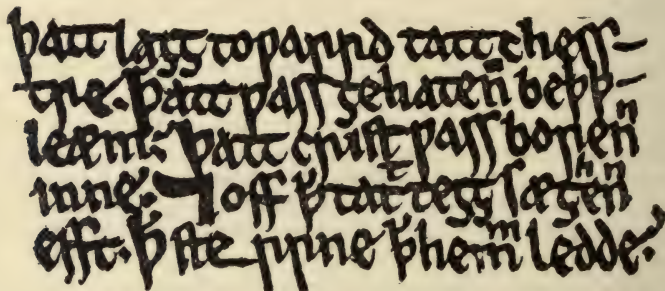 þatt laȝȝ toƿarrd tatt chess-
tre. þatt ƿass ȝehatenn beþþ-
leæm. þatt crist ƿass borenn
inne. ⁊ off þ tatt teȝȝ sæȝhenn
efft. þ ste rrne þ hemm ledde.